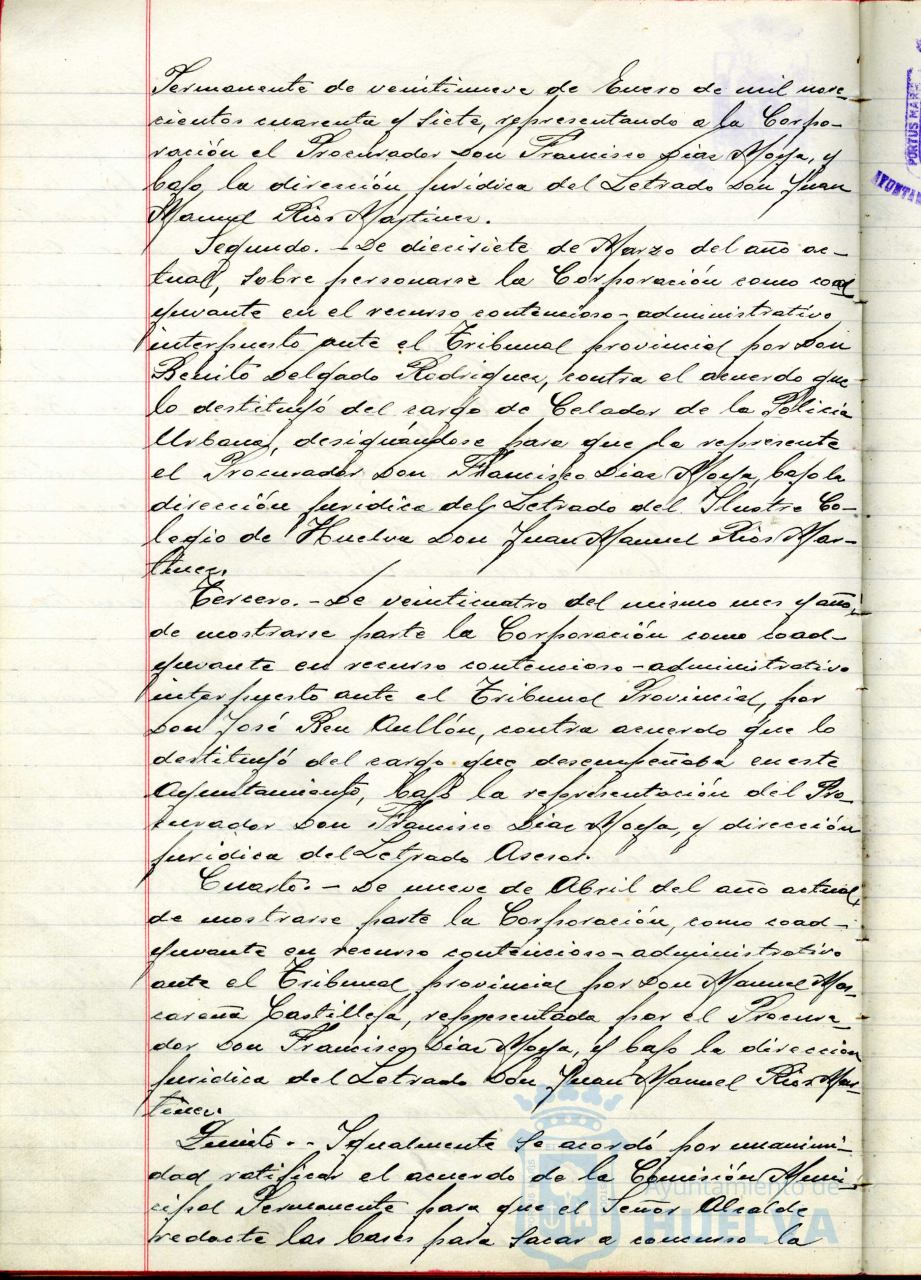 Permanente de veintinueve de Enero de mil nove-
cientos cuarenta y siete, representando a la Corpo-
ración el Procurador Don Francisco Díaz Moya, y
bajo la dirección jurídica del Letrado Don Juan
Manuel Ríos Martínez.
Segundo. - De diecisiete de Marzo del año ac-
tual, sobre personarse la Corporación como coad-
yuvante en el recurso contencioso-administrativo
interpuesto ante el Tribunal provincial por Don
Benito Delgado Rodríguez, contra el acuerdo que
lo destituyó del cargo de Celador de la Policía
Urbana, designándose para que la represente
el Procurador Don Francisco Díaz Moya, bajo la
dirección jurídica del Letrado del Ilustre Co-
legio de Huelva Don Juan Manuel Ríos Mar-
tínez.
Tercero. - De veinticuatro del mismo mes y año,
de mostrarse parte la Corporación como coad-
yuvante en recurso contencioso-administrativo
interpuesto ante el Tribunal Provincial, por
Don José Rey Aullón, contra acuerdo que lo
destituyó del cargo que desempeñaba en este
Ayuntamiento, bajo la representación del Pro-
curador Don Francisco Díaz Moya, y dirección
jurídica del Letrado Asesor.
Cuarto. - De nueve de Abril del año actual,
de mostrarse parte la Corporación, como coad-
yuvante en recurso contencioso-administrativo
ante el Tribunal provincial por Don Manuel Ma-
careña Castilleja, representada por el Procura-
dor Don Francisco Díaz Moya, y bajo la dirección
jurídica del Letrado Don Juan Manuel Ríos Mar-
tínez.
Quinto. - Igualmente se acordó por unanimi-
dad ratificar el acuerdo de la Comisión Muni-
cipal Permanente para que el Señor Alcalde
redacte las bases para sacar a concurso la
Ayuntamiento de
HUELVA